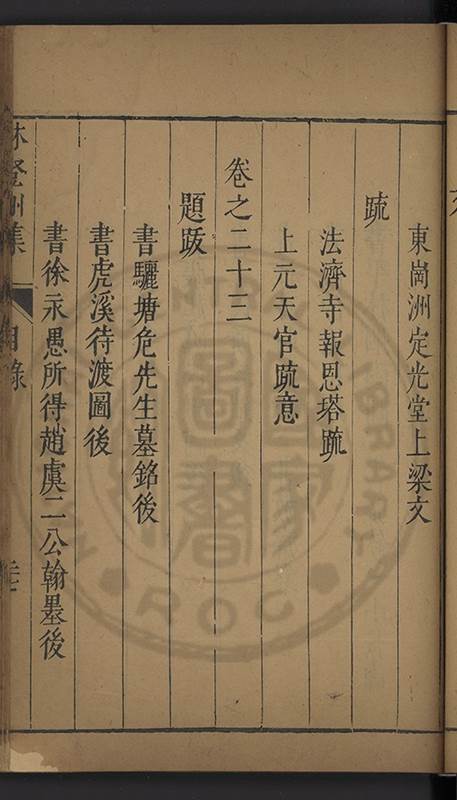 東崗洲定光堂上梁文
疏
法濟寺報恩塔疏
上元天官疏意
卷之二十三
題跋
書驪塘危先生墓銘後
書虎溪待渡圖後
書徐永愚所得趙虞二公翰墨後
林登州集
目錄